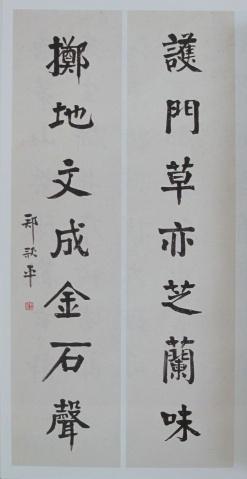 護門草亦芝蘭味
擲地文成金石聲
郑歌平